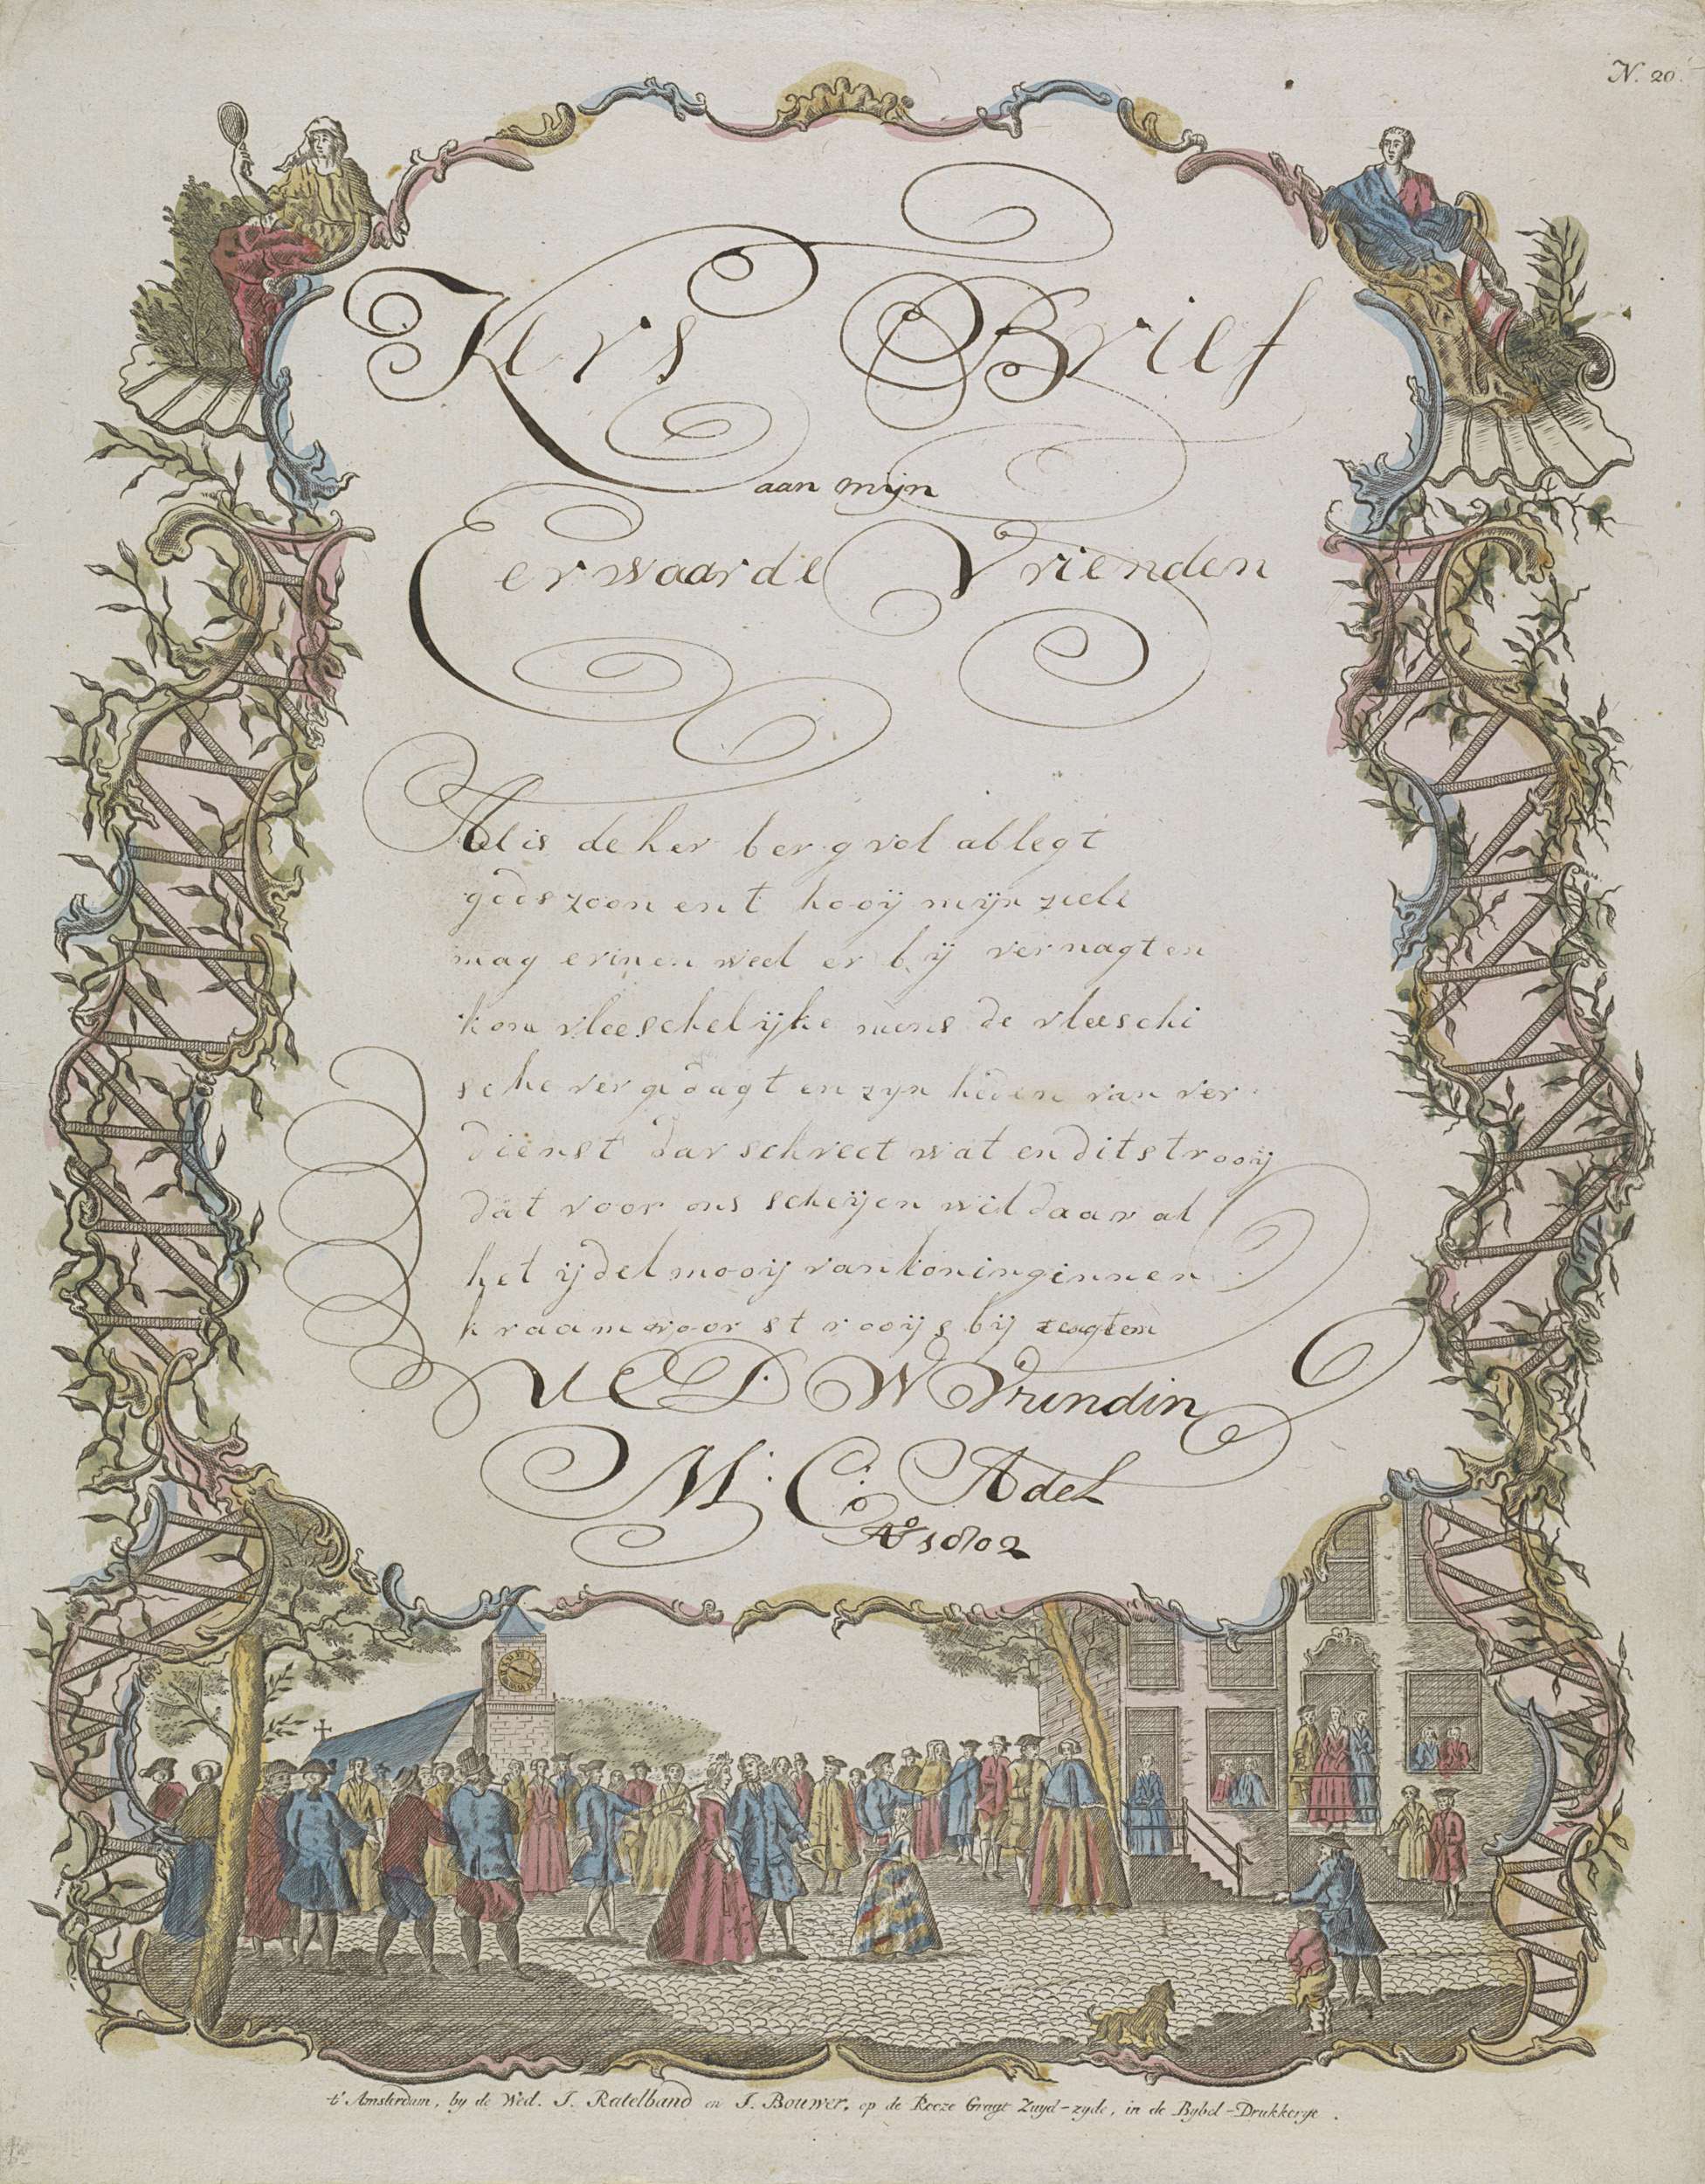 N. 20.
Kers Brief
aan mijn
Eerwaarde Vrienden
Al is de her berg vol al legt
gods zoon en t hooij mijn ziele
mag erinen weel er bij vernagten
kom vleeschelijke mens de vleeschi
sche ver gedagt en zyn heden van ver
dienst dar schrect wat en dit strooij
dat voor ons scheijen wil daar al
het ijdel mooij van koninginnen
kraam voor strooijs bij
U E D W Vrindin
M: C: Adel
Ao 1802
t' Amsterdam, by de Wed. J. Ratelband en J. Bouwer, op de Rooze Gragt Zuyd-zyde, in de Bybel-Drukkerije.